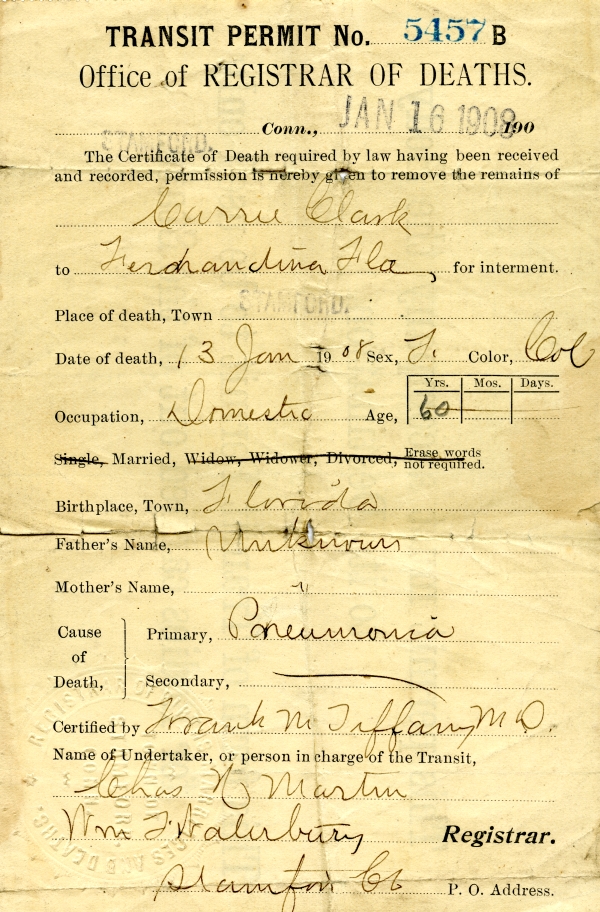 TRANSIT PERMIT No. 5457 B
Office of REGISTRAR OF DEATHS.
STAMFORD. Conn., JAN 16 1908 190
The Certificate of Death required by law having been received
and recorded, permission is hereby given to remove the remains of
Carrie Clark
to Ferdnandina Fla, for interment.
Place of death, Town STAMFORD.
Date of death, 13 Jan 1908 Sex, F. Color, Col
Yrs. Mos. Days.
Occupation, Domestic Age, 60
Single, Married, Widow, Widower, Divorced, Erase words
not required.
Birthplace, Town, Florida
Father's Name, Unknown
Mother's Name, "
Cause of Death, Primary, Pneumonia
Secondary,
Certified by Frank M Tiffany M D.
Name of Undertaker, or person in charge of the Transit,
Chas N Martin
Wm F Waterbury Registrar.
Stamford Ct P. O. Address.